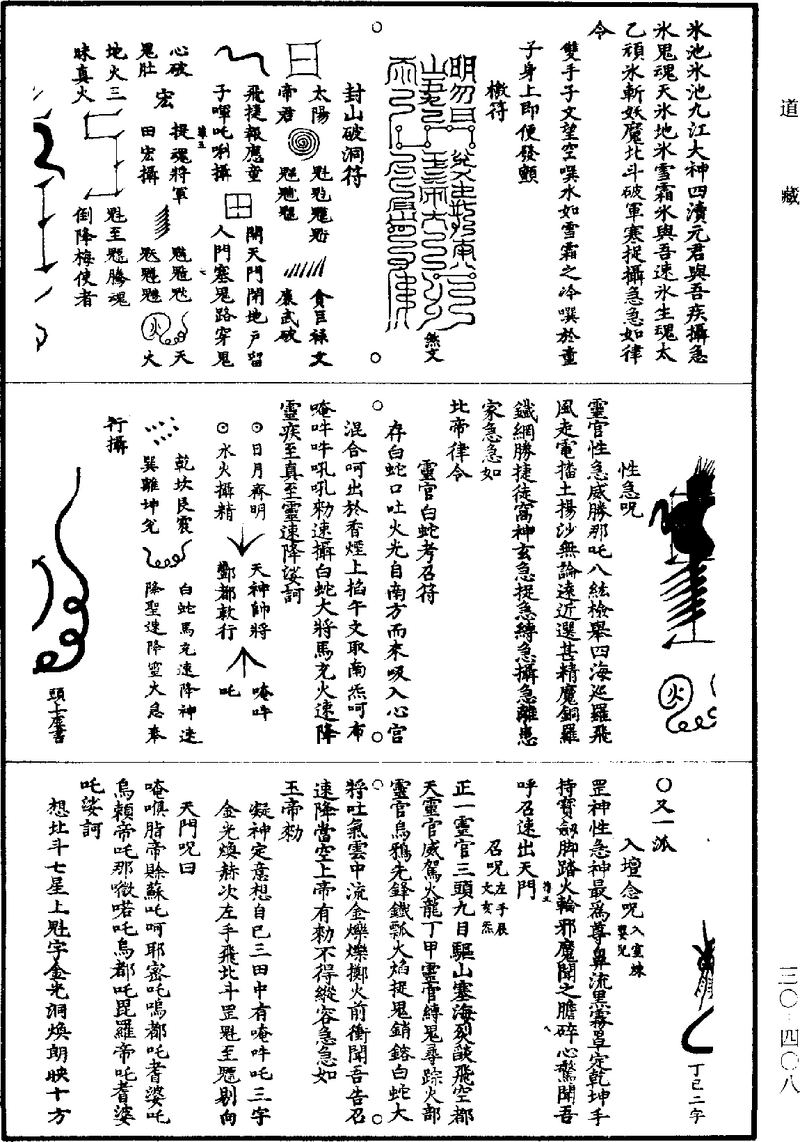 道藏
氷池氷池九江大神四瀆元君與吾疾攝急
氷鬼魂天氷地氷雪霜氷與吾速氷生魂太
乙頑氷斬妖魔北斗破軍寒捉攝急急如律
令
雙手子文望空噀水如雪霜之冷噀於童
子身上即便發顫
檄符
煞文
封山破洞符
太陽
帝君
貪巨祿文
廉武破
飛捷報應童
子嗶吒唎攝
開天門閉地戶留
人門塞鬼路穿鬼
心破
鬼肚
宏
提魂將軍
田宏攝
火
天
火
地火三
昧真火
魁至魒騰魂
倒降梅使者
性急呪
靈官性急威勝那吒八紘檢舉四海巡羅飛
風走電播土揚沙無論遠近選甚精魔銅羅
鐵網勝捷徒窩神玄急捉急縛急攝急離患
家急急如
北帝律令
靈官白蛇考召符
存白蛇口吐火光自南方而來吸入心宮
混合呵出於香煙上掐午文取南炁呵布
唵吽吽吼吼勑速攝白蛇大將馬充火速降
靈疾至真至靈速降娑訶
日月齊明
水火攝精
天神帥將
酆都敕行
唵吽
吒
乾坎艮震
巽離坤兌
白蛇馬充速降神速
降聖速降靈火急奉
行攝
頭上虛書
丁巳二字
○又一派
入壇念呪
入室煉
嬰兒
罡神性急神最為尊鼻流黑霧罩定乾坤手
持寶劍脚踏火輪邪魔聞之膽碎心驚聞吾
呼召速出天門
召呪
左手辰
文亥炁
正一靈官三頭九目驅山塞海烈燄飛空都
天靈官威駕火龍丁甲靈官縛鬼尋踪火部
靈官烏鴉先鋒鐵瓢火焰捉鬼銷鎔白蛇大
將吐氣雲中流金爍爍擲火前衝聞吾告召
速降當空上帝有勑不得縱容急急如
玉帝勑
凝神定意想自己三田中有唵吽吒三字
金光煥赫次左手飛北斗罡魁至魒剔向
天門呪曰
唵嗔脂帝賒蘇吒呵耶密吒嗚都吒耆婆吒
烏賴帝吒那微喏吒烏都吒毘羅帝吒耆婆
吒娑訶
想北斗七星上魁字金光洞煥朗映十方
三〇-四〇八